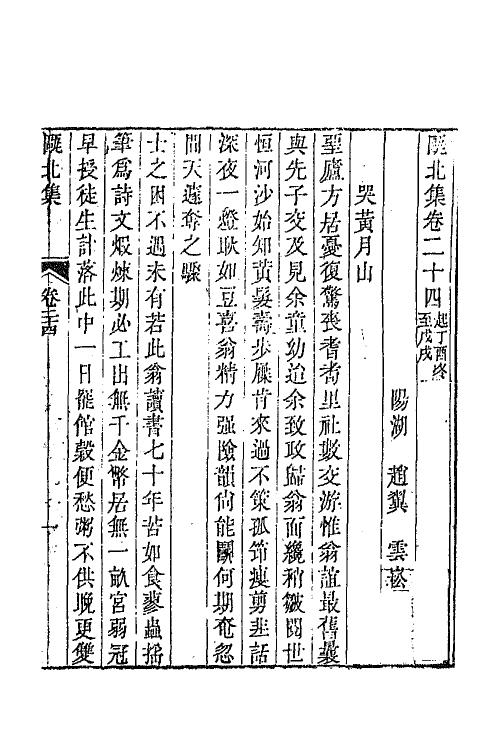 甌北集卷二十四起丁酉終至戊戌
陽湖 趙翼 雲崧
哭黃月山
堊廬方居憂復驚喪耆耇里社數交游惟翁誼最舊曩
與先子交及見余童幼迨余致政歸翁面纔稍皺閱世
恒河沙始知黃髮壽步屧肯來過不策孤笻瘦剪韭話
深夜一燈耿如豆喜翁精力强險韻尙能鬭何期奄忽
間天遽奪之驟
士之困不遇未有若此翁讀書七十年苦如食蓼蟲搖
筆爲詩文煅煉期必工出無千金幣居無一畝宮弱冠
早授徒生計落此中一日罷館穀便愁粥不供晚更雙
甌北集
卷二十四
一